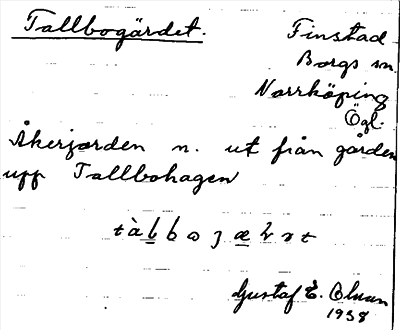 Tallbogärdet.
Finstad
Borgs sn.
Norrköping
Ögl.
Åkerjorden n. ut från gården
upp Tallbohagen
Gustaf E. Olsson
1938